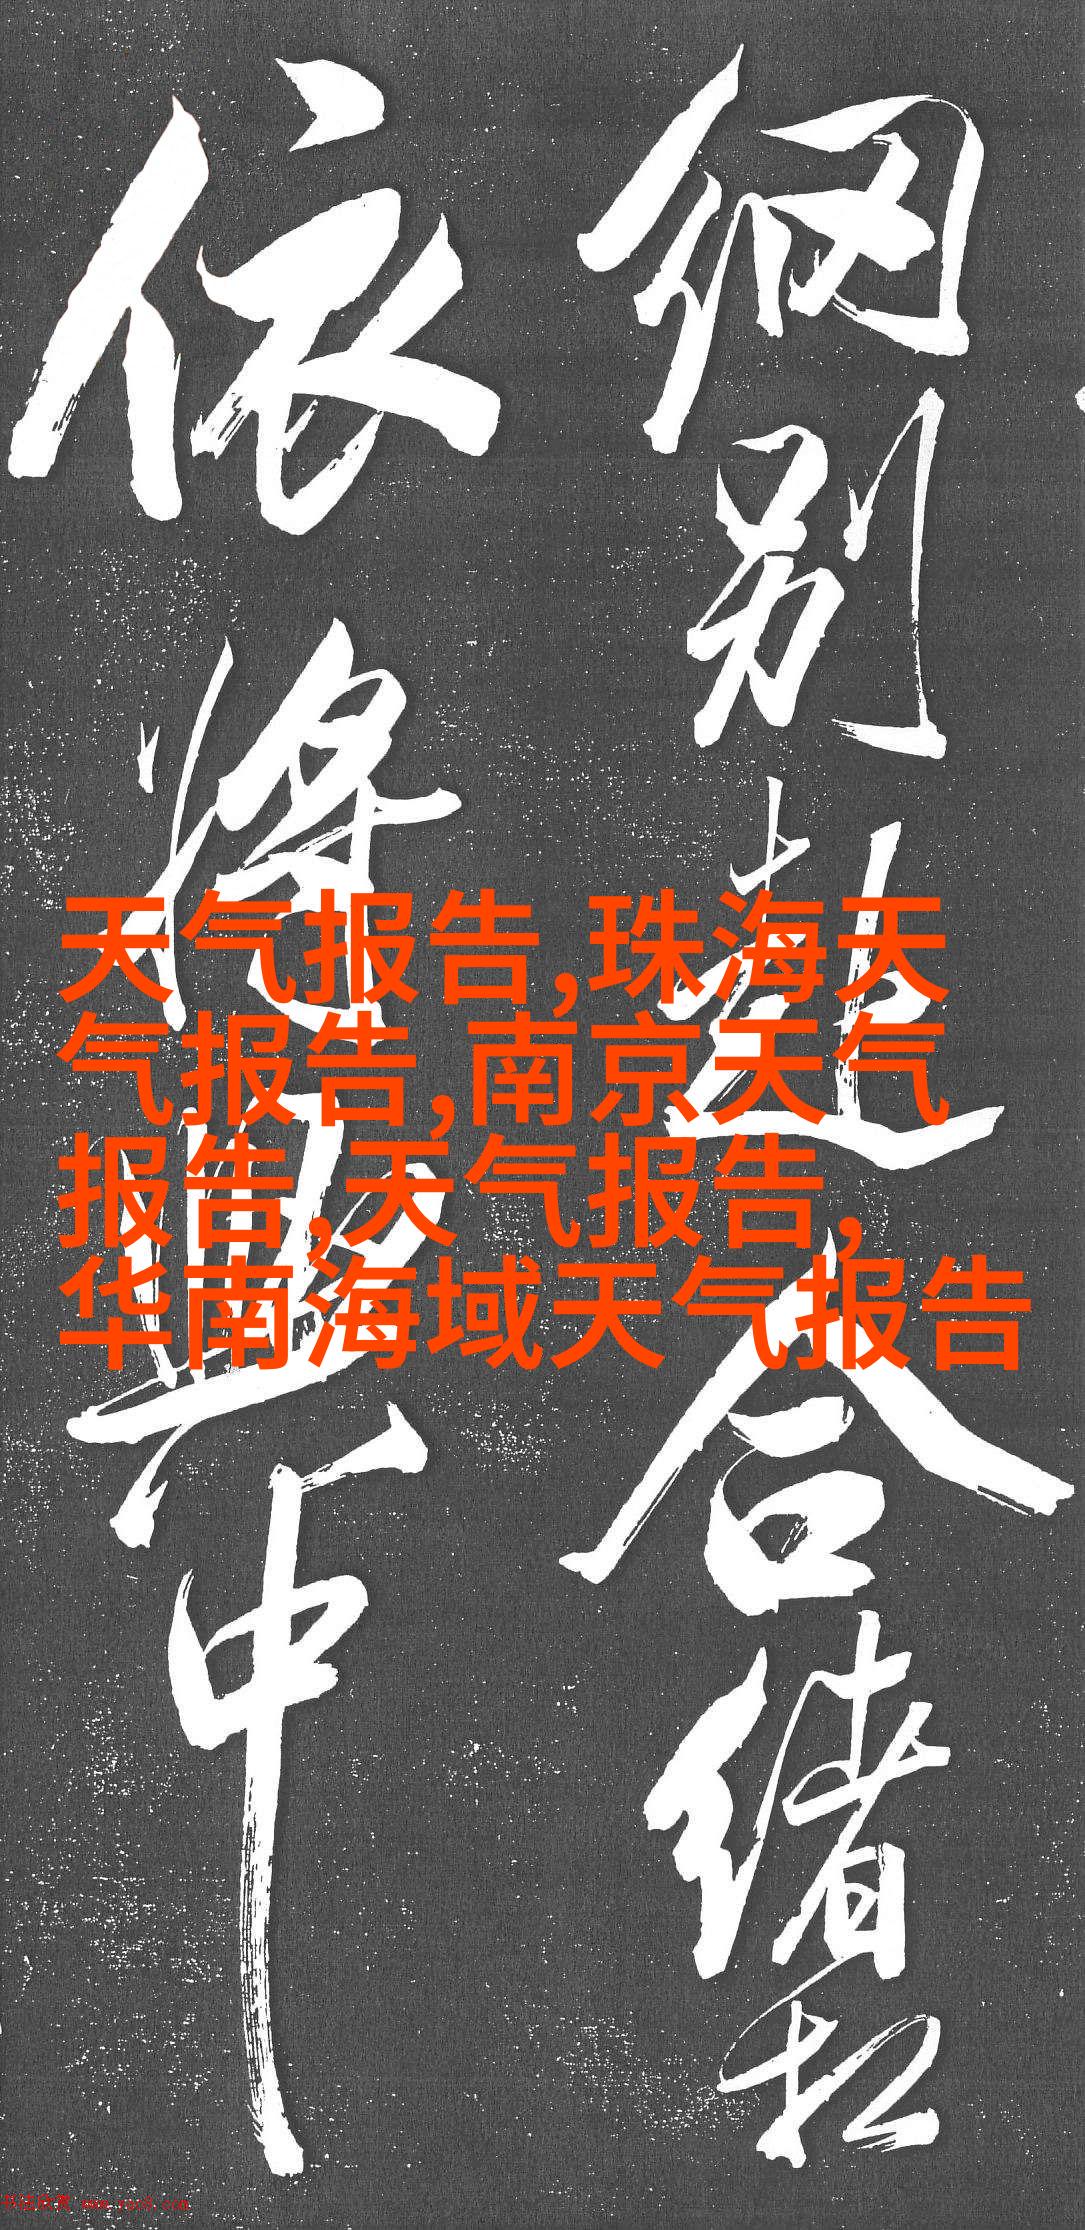 天气报告,珠海天
气报告,南京天气
报告,天气报告,
华南海域天气报告
别赴合绪扣
依将
中
书法欣赏 www.yac8.com